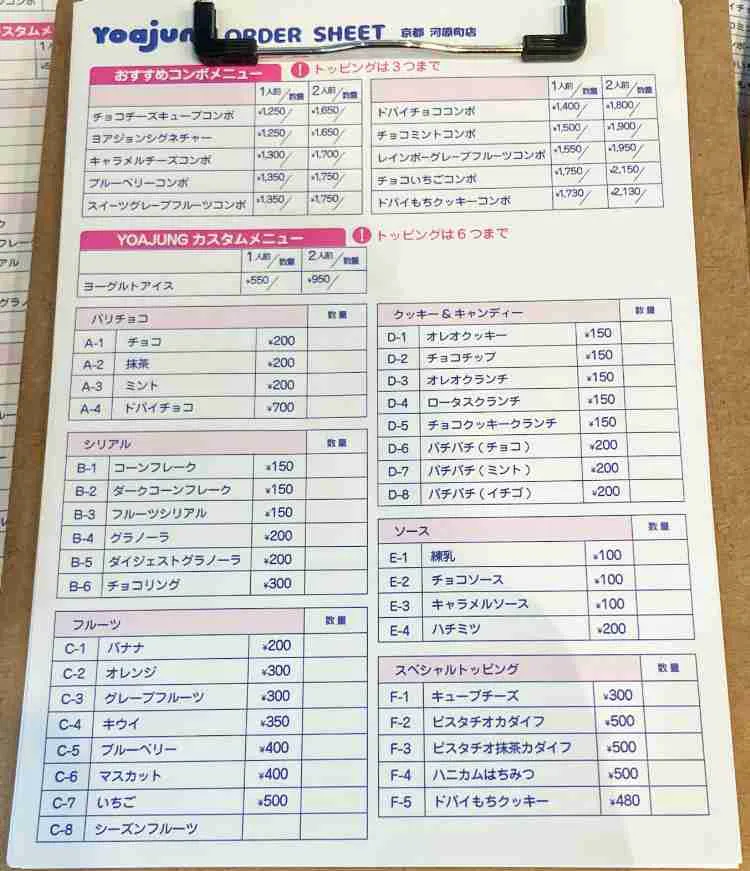 Yoajung ORDER SHEET 京都 河原町店
おすすめコンボメニュー ! トッピングは3つまで
1人前/数量 2人前/数量
チョコチーズキューブコンボ ¥1,250/ ¥1,650/
ヨアジョンシグネチャー ¥1,250/ ¥1,650/
キャラメルチーズコンボ ¥1,300/ ¥1,700/
ブルーベリーコンボ ¥1,350/ ¥1,750/
スイーツグレープフルーツコンボ ¥1,350/ ¥1,750/
1人前/数量 2人前/数量
ドバイチョココンボ ¥1,400/ ¥1,800/
チョコミントコンボ ¥1,500/ ¥1,900/
レインボーグレープフルーツコンボ ¥1,550/ ¥1,950/
チョコいちごコンボ ¥1,750/ ¥2,150/
ドバイもちクッキーコンボ ¥1,730/ ¥2,130/
YOAJUNG カスタムメニュー ! トッピングは6つまで
1人前/数量 2人前/数量
ヨーグルトアイス ¥550/ ¥950/
パリチョコ 数量
A-1 チョコ ¥200
A-2 抹茶 ¥200
A-3 ミント ¥200
A-4 ドバイチョコ ¥700
シリアル 数量
B-1 コーンフレーク ¥150
B-2 ダークコーンフレーク ¥150
B-3 フルーツシリアル ¥150
B-4 グラノーラ ¥200
B-5 ダイジェストグラノーラ ¥200
B-6 チョコリング ¥300
フルーツ 数量
C-1 バナナ ¥200
C-2 オレンジ ¥300
C-3 グレープフルーツ ¥300
C-4 キウイ ¥350
C-5 ブルーベリー ¥400
C-6 マスカット ¥400
C-7 いちご ¥500
C-8 シーズンフルーツ
クッキー&キャンディー 数量
D-1 オレオクッキー ¥150
D-2 チョコチップ ¥150
D-3 オレオクランチ ¥150
D-4 ロータスクランチ ¥150
D-5 チョコクッキークランチ ¥150
D-6 パチパチ(チョコ) ¥200
D-7 パチパチ(ミント) ¥200
D-8 パチパチ(イチゴ) ¥200
ソース 数量
E-1 練乳 ¥100
E-2 チョコソース ¥100
E-3 キャラメルソース ¥100
E-4 ハチミツ ¥200
スペシャルトッピング 数量
F-1 キューブチーズ ¥300
F-2 ピスタチオカダイフ ¥500
F-3 ピスタチオ抹茶カダイフ ¥500
F-4 ハニカムはちみつ ¥500
F-5 ドバイもちクッキー ¥480